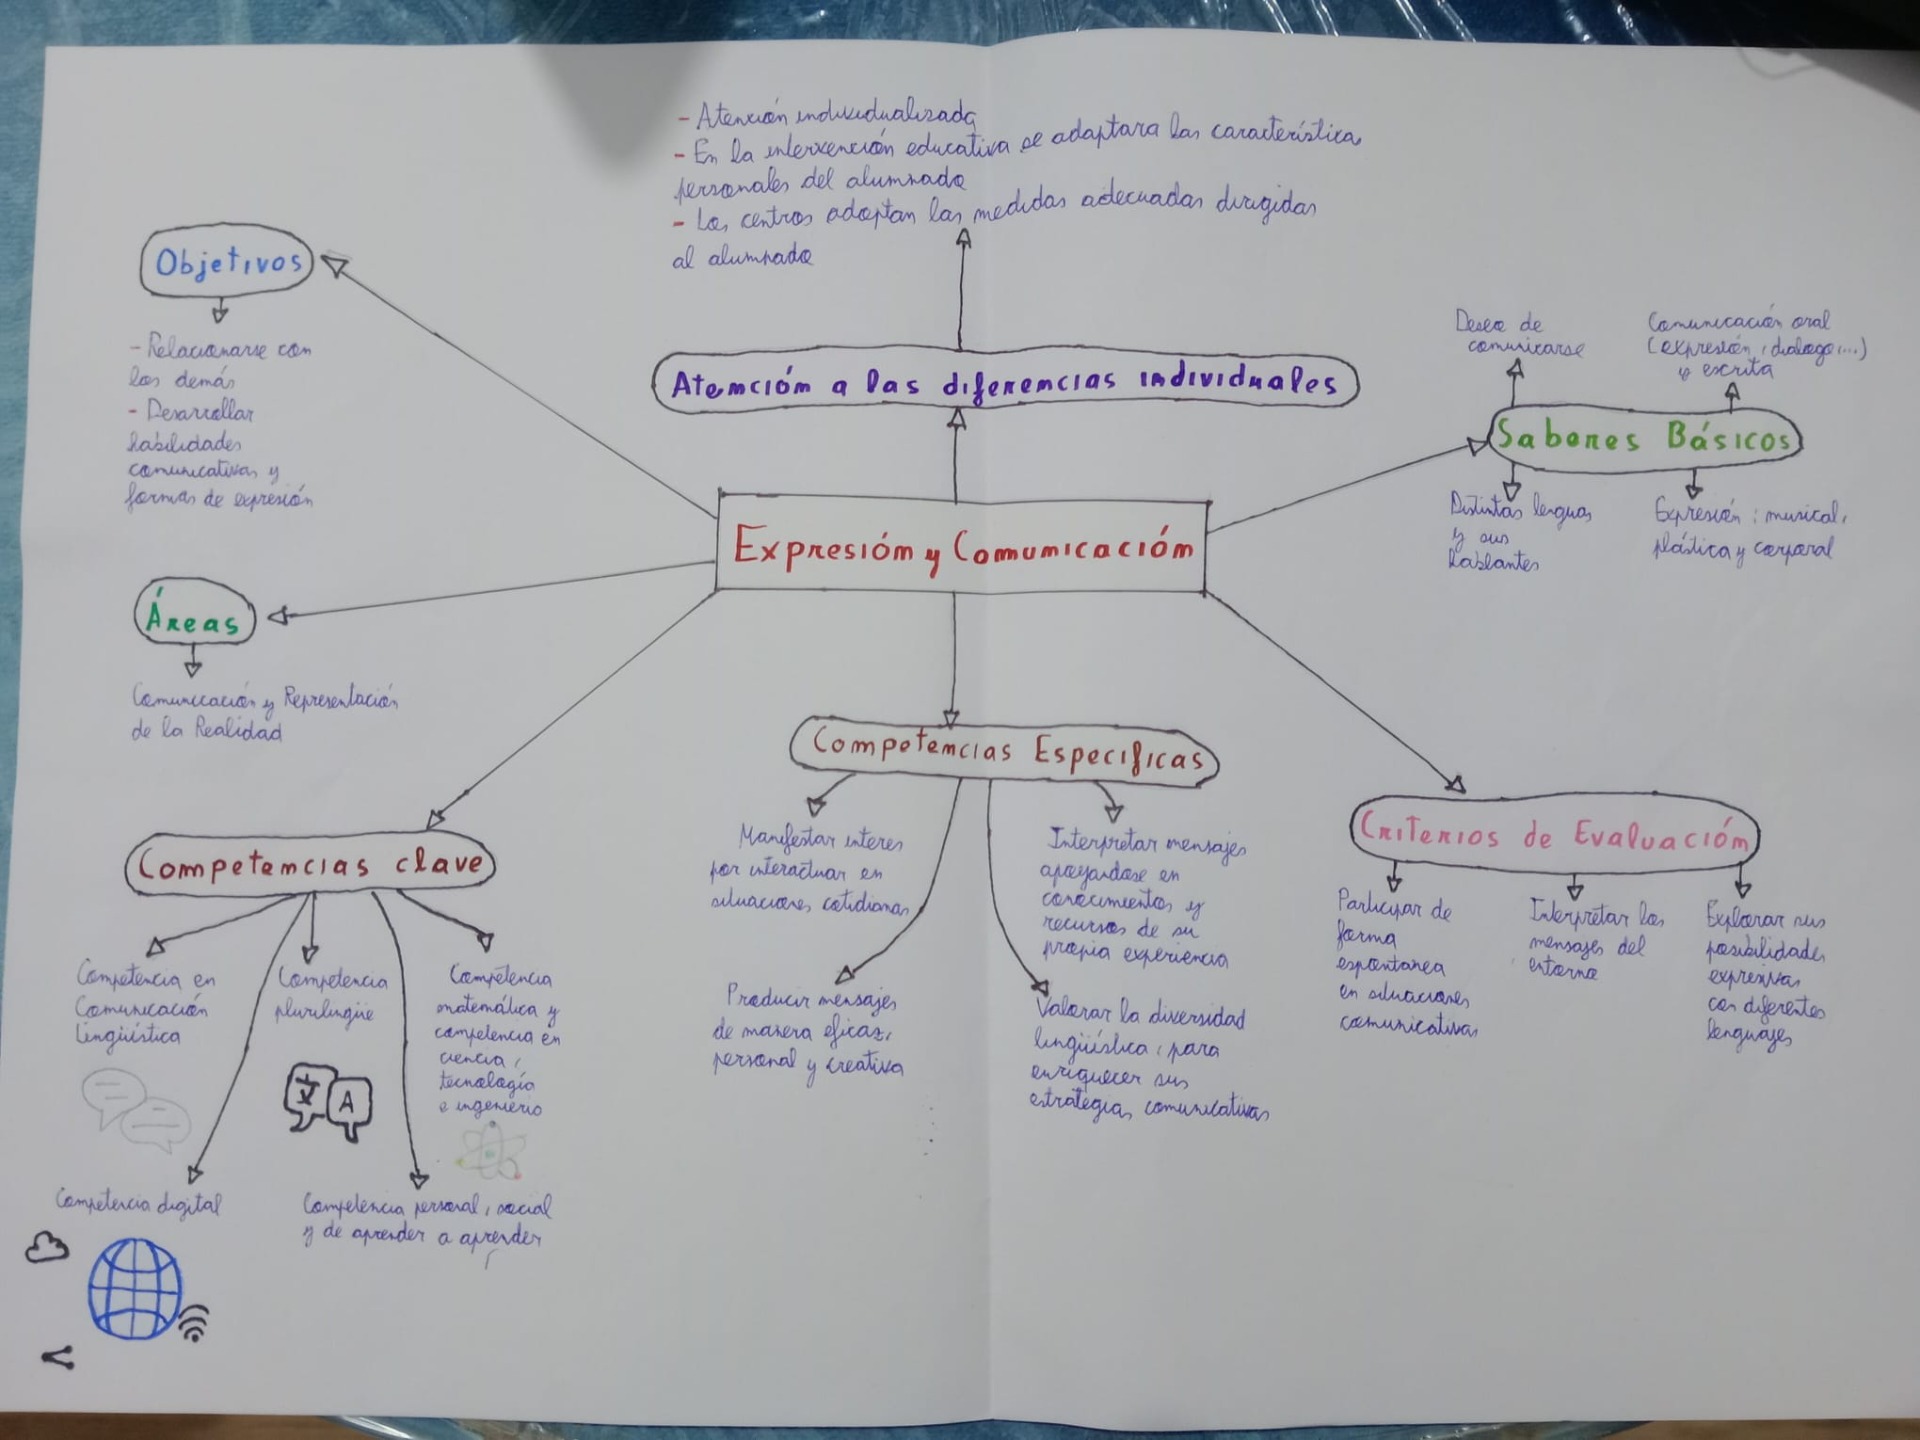 - Atención individualizada
- En la intervención educativa se adaptara las característica
personales del alumnado
- Los centros adoptan las medidas adecuadas dirigidas
al alumnado
Atención a las diferencias individuales
Objetivos
- Relacionarse con
los demás
- Desarrollar
habilidades
comunicativas y
formas de expresión
Deseo de
comunicarse
Comunicación oral
(expresión, dialogo,...)
y escrita
Sabores Básicos
Distintas lenguas
y sus
hablantes
Expresión: musical,
plástica y corporal
Expresión y Comunicación
Áreas
Comunicación y Representación
de la Realidad
Competencias clave
Competencia en
Comunicación
lingüística
Competencia
plurilingüe
Competencia
matemática y
competencia en
ciencia,
tecnología
e ingenierio
文 A
Competencia digital
Competencia personal, social
y de aprender a aprender
Competencias Especificas
Manifestar interes
por interactuar en
situaciones cotidianas
Interpretar mensajes
apoyandose en
conocimientos y
recursos de su
propia experiencia
Producir mensajes
de manera eficaz,
personal y creativa
Valorar la diversidad
lingüística, para
enriquecer sus
estrategias comunicativas
Criterios de Evaluación
Participar de
forma
espontanea
en situaciones
comunicativas
Interpretar los
mensajes del
entorno
Explorar sus
posibilidades
expresivas
con diferentes
lenguajes